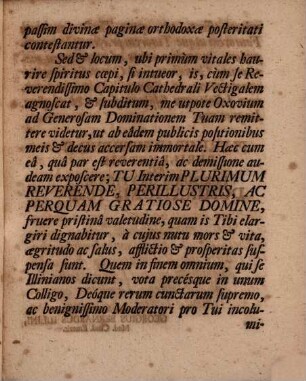 passim divinæ paginæ orthodoxæ posteritati
contestantur.
Sed & locum, ubi primùm vitales hau-
rire spiritus cœpi, si intueor, is, cùm se Re-
verendissimo Capitulo Cathedrali Vectigalem
agnoscat, & subditum, me utpote Oxovium
ad Generosam Dominationem Tuam remit-
tere videtur, ut ab eâdem publicis positionibus
meis & decus accersam immortale. Hæc cum
eâ, quâ par est reverentiâ, ac demissione au-
deam exposcere; TU Interim PLURIMUM
REVERENDE, PERILLUSTRIS, AC
PERQUAM GRATIOSE DOMINE,
fruere pristinâ valetudine, quam is Tibi elar-
giri dignabitur, à cujus nutu mors & vita,
ægritudo ac salus, afflictio & prosperitas sus-
pensa sunt. Quem in finem omnium, qui se
Illinianos dicunt, vota precésque in unum
Colligo, Deóque rerum cunctarum supremo,
ac benignissimo Moderatori pro Tui incolu-
mi-